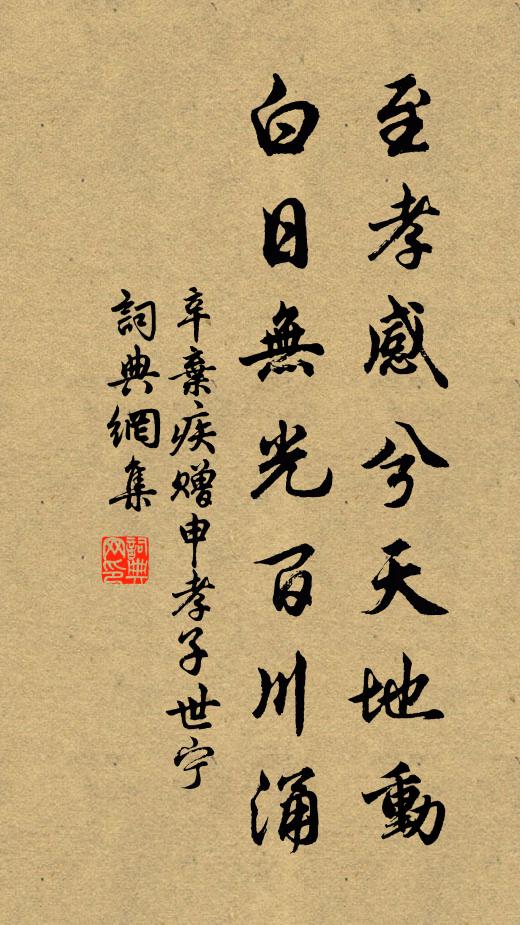 至孝感兮天地動
白日無光百川涌
辛棄疾赠申孝子世宁
詞典網集
詞典网印